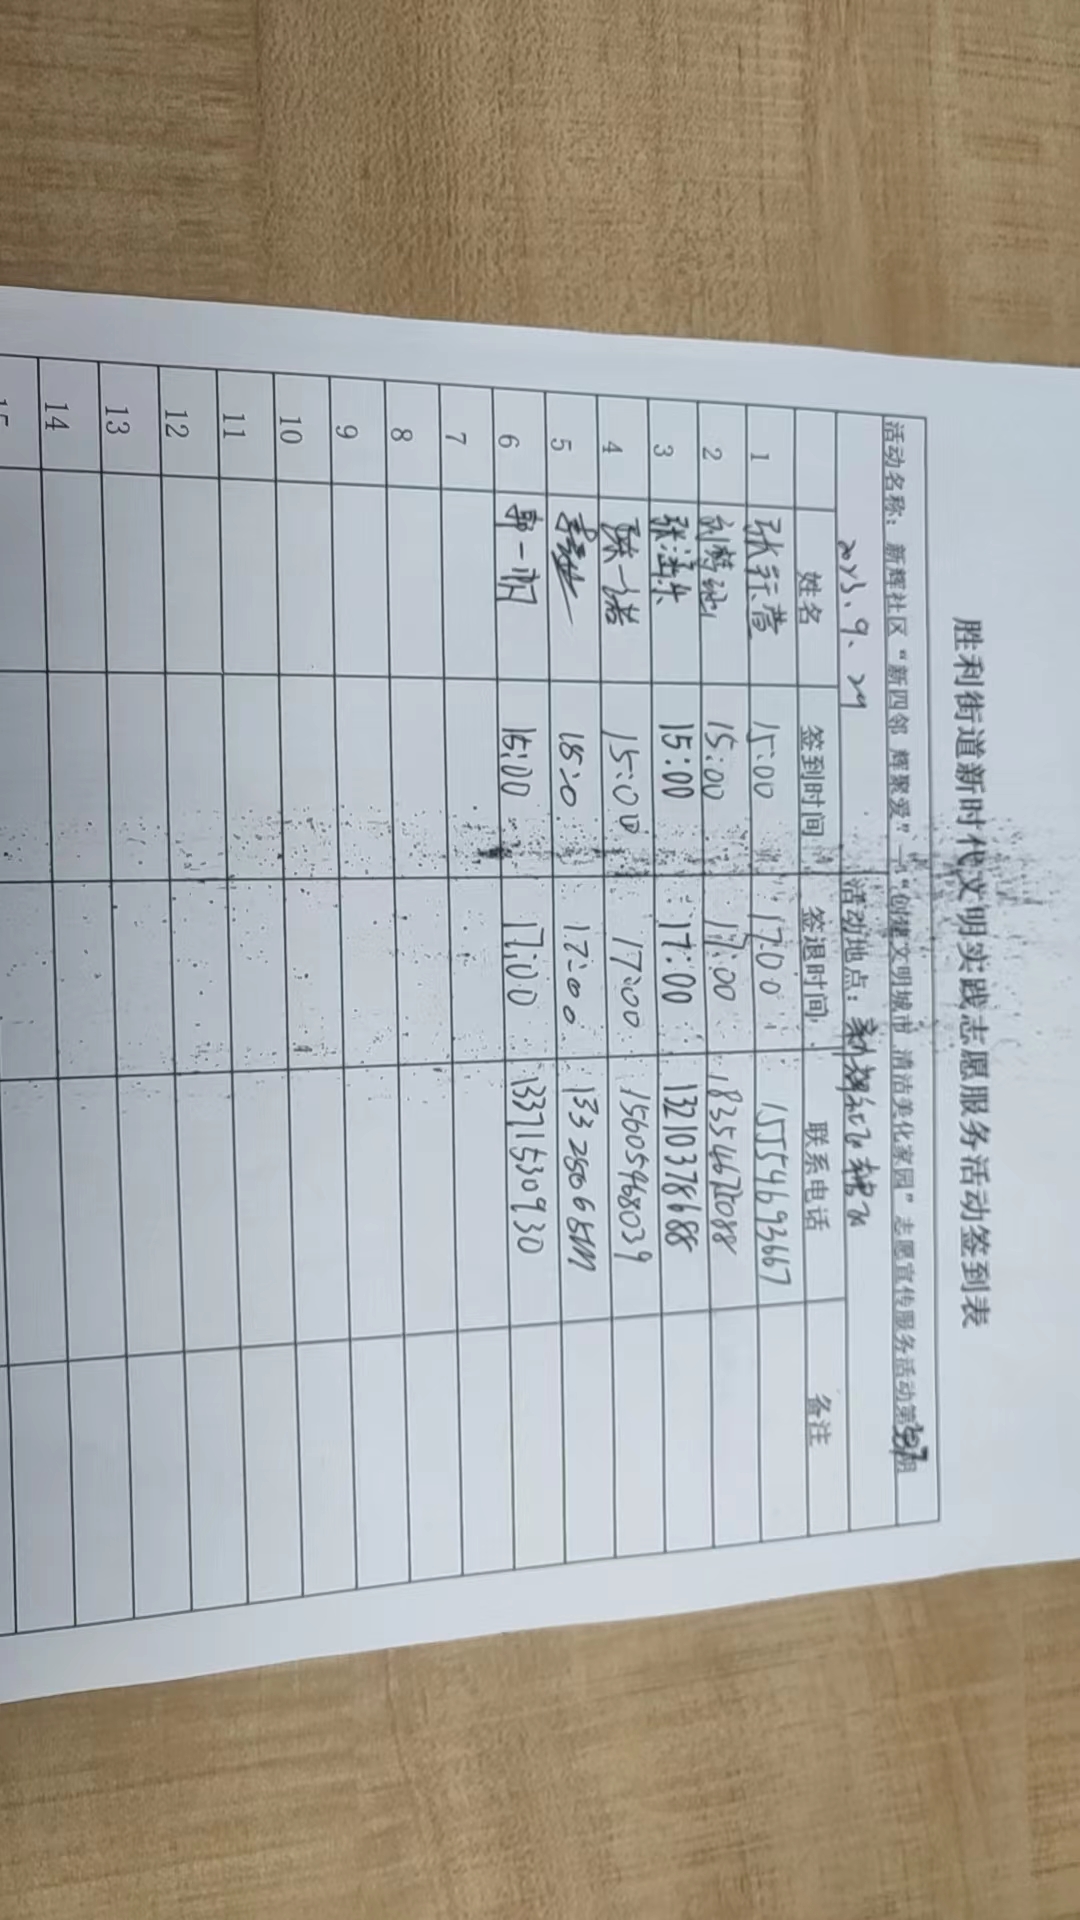 胜利街道新时代文明实践志愿服务活动签到表
活动名称：新辉社区“新四邻 辉聚爱”—“创建文明城市 清洁美化家园”志愿宣传服务活动第 期
2023.9.29 活动地点：新辉社区
姓名 签到时间 签退时间 联系电话 备注
1 张行 15:00 17:00 15554693667
2 刘梦 15:00 17:00
3 张涵 15:00 17:00 13210378688
4 陈一诺 15:00 17:00 15605468039
5 17:00
6 郭一 15:00 17:00 13371530930
7
8
9
10
11
12
13
14
15